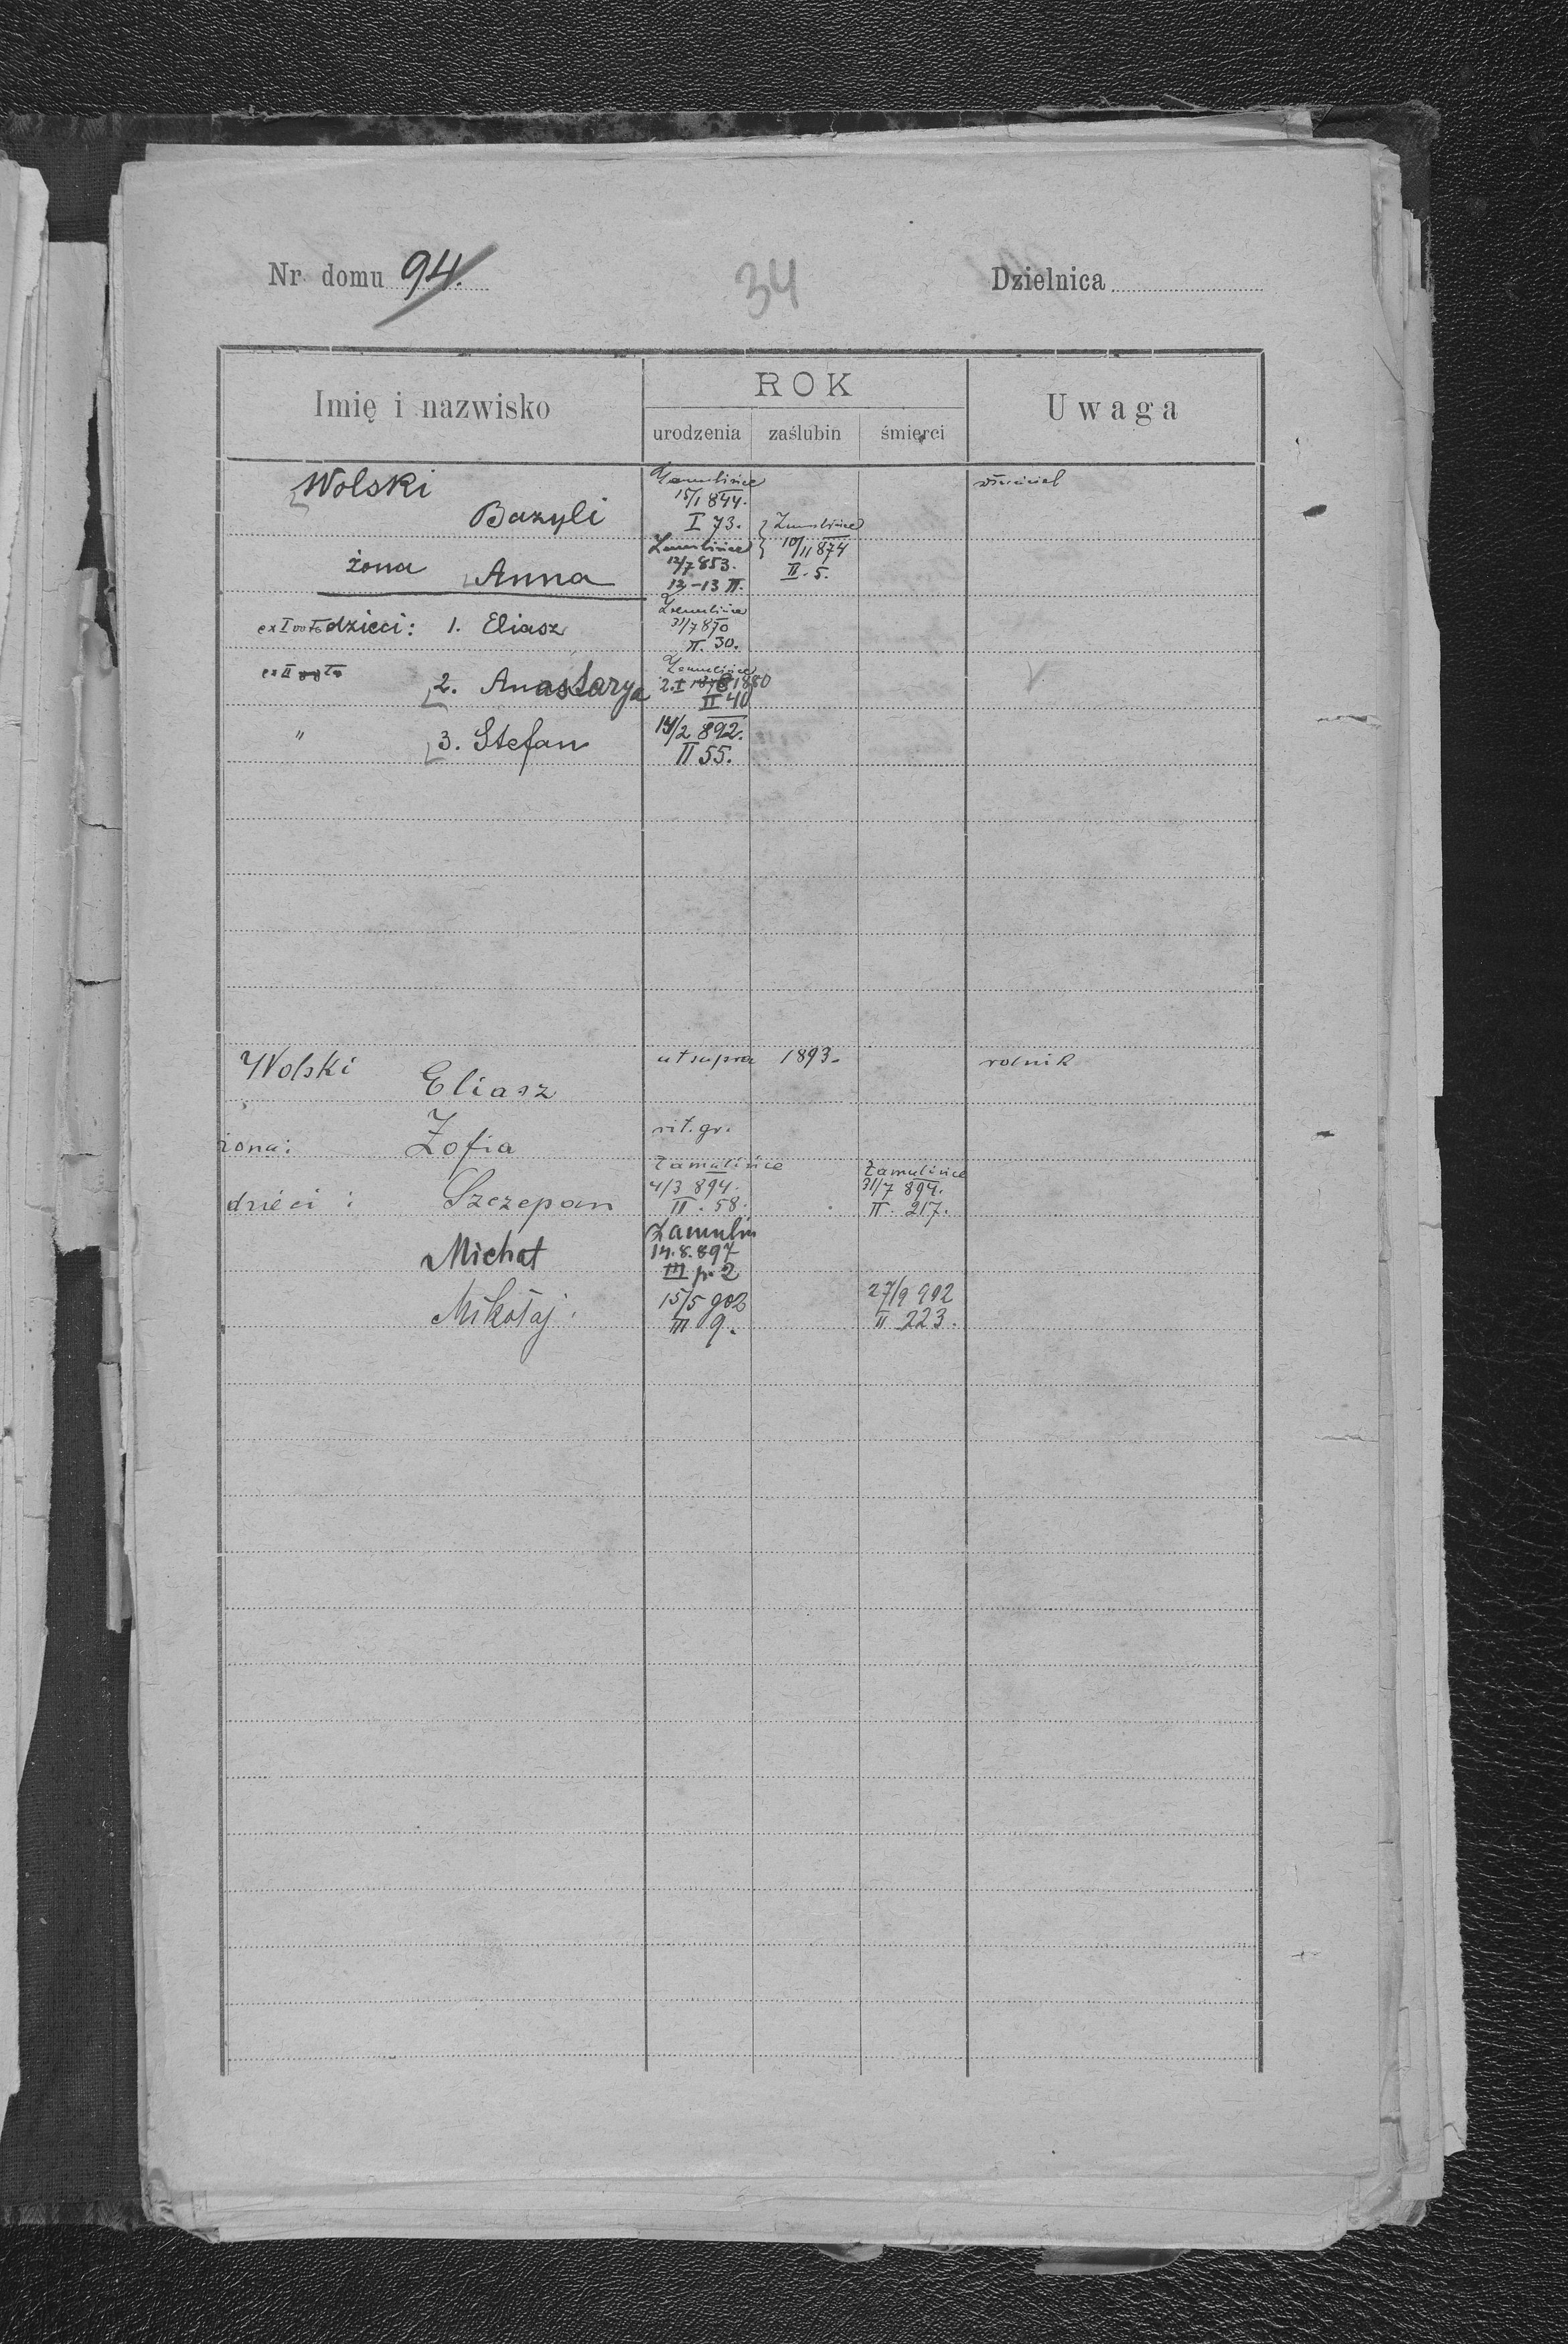 Nr. domu 94.
34
Dzielnica
Imię i nazwisko
ROK
urodzenia zaślubin śmierci
Uwaga
Wolski
Bazyli
Zamulińce
15/1 844.
I 73.
żona Anna
Zamulińce
12/7 853.
12-13 II.
Zamulińce
10/11 874
II. 5.
ex I voto dzieci: 1. Eliasz
Zamulińce
31/7 870
II. 30.
ex II voto
2. Anastazya
Zamulińce
2. I 1880
II 40
" 3. Stefan
14/2 892.
II 55.
Wolski
Eliasz
ut supra 1893. rolnik
żona: Zofia
rit. gr.
dzieci: Szczepan
Zamulińce
4/3 894.
II. 58.
Zamulińce
31/7 894.
II. 217.
Michał
Zamulin
14.8.897
III p. 2
Mikołaj.
15/5 902
III 9.
27/9 902
II 223.